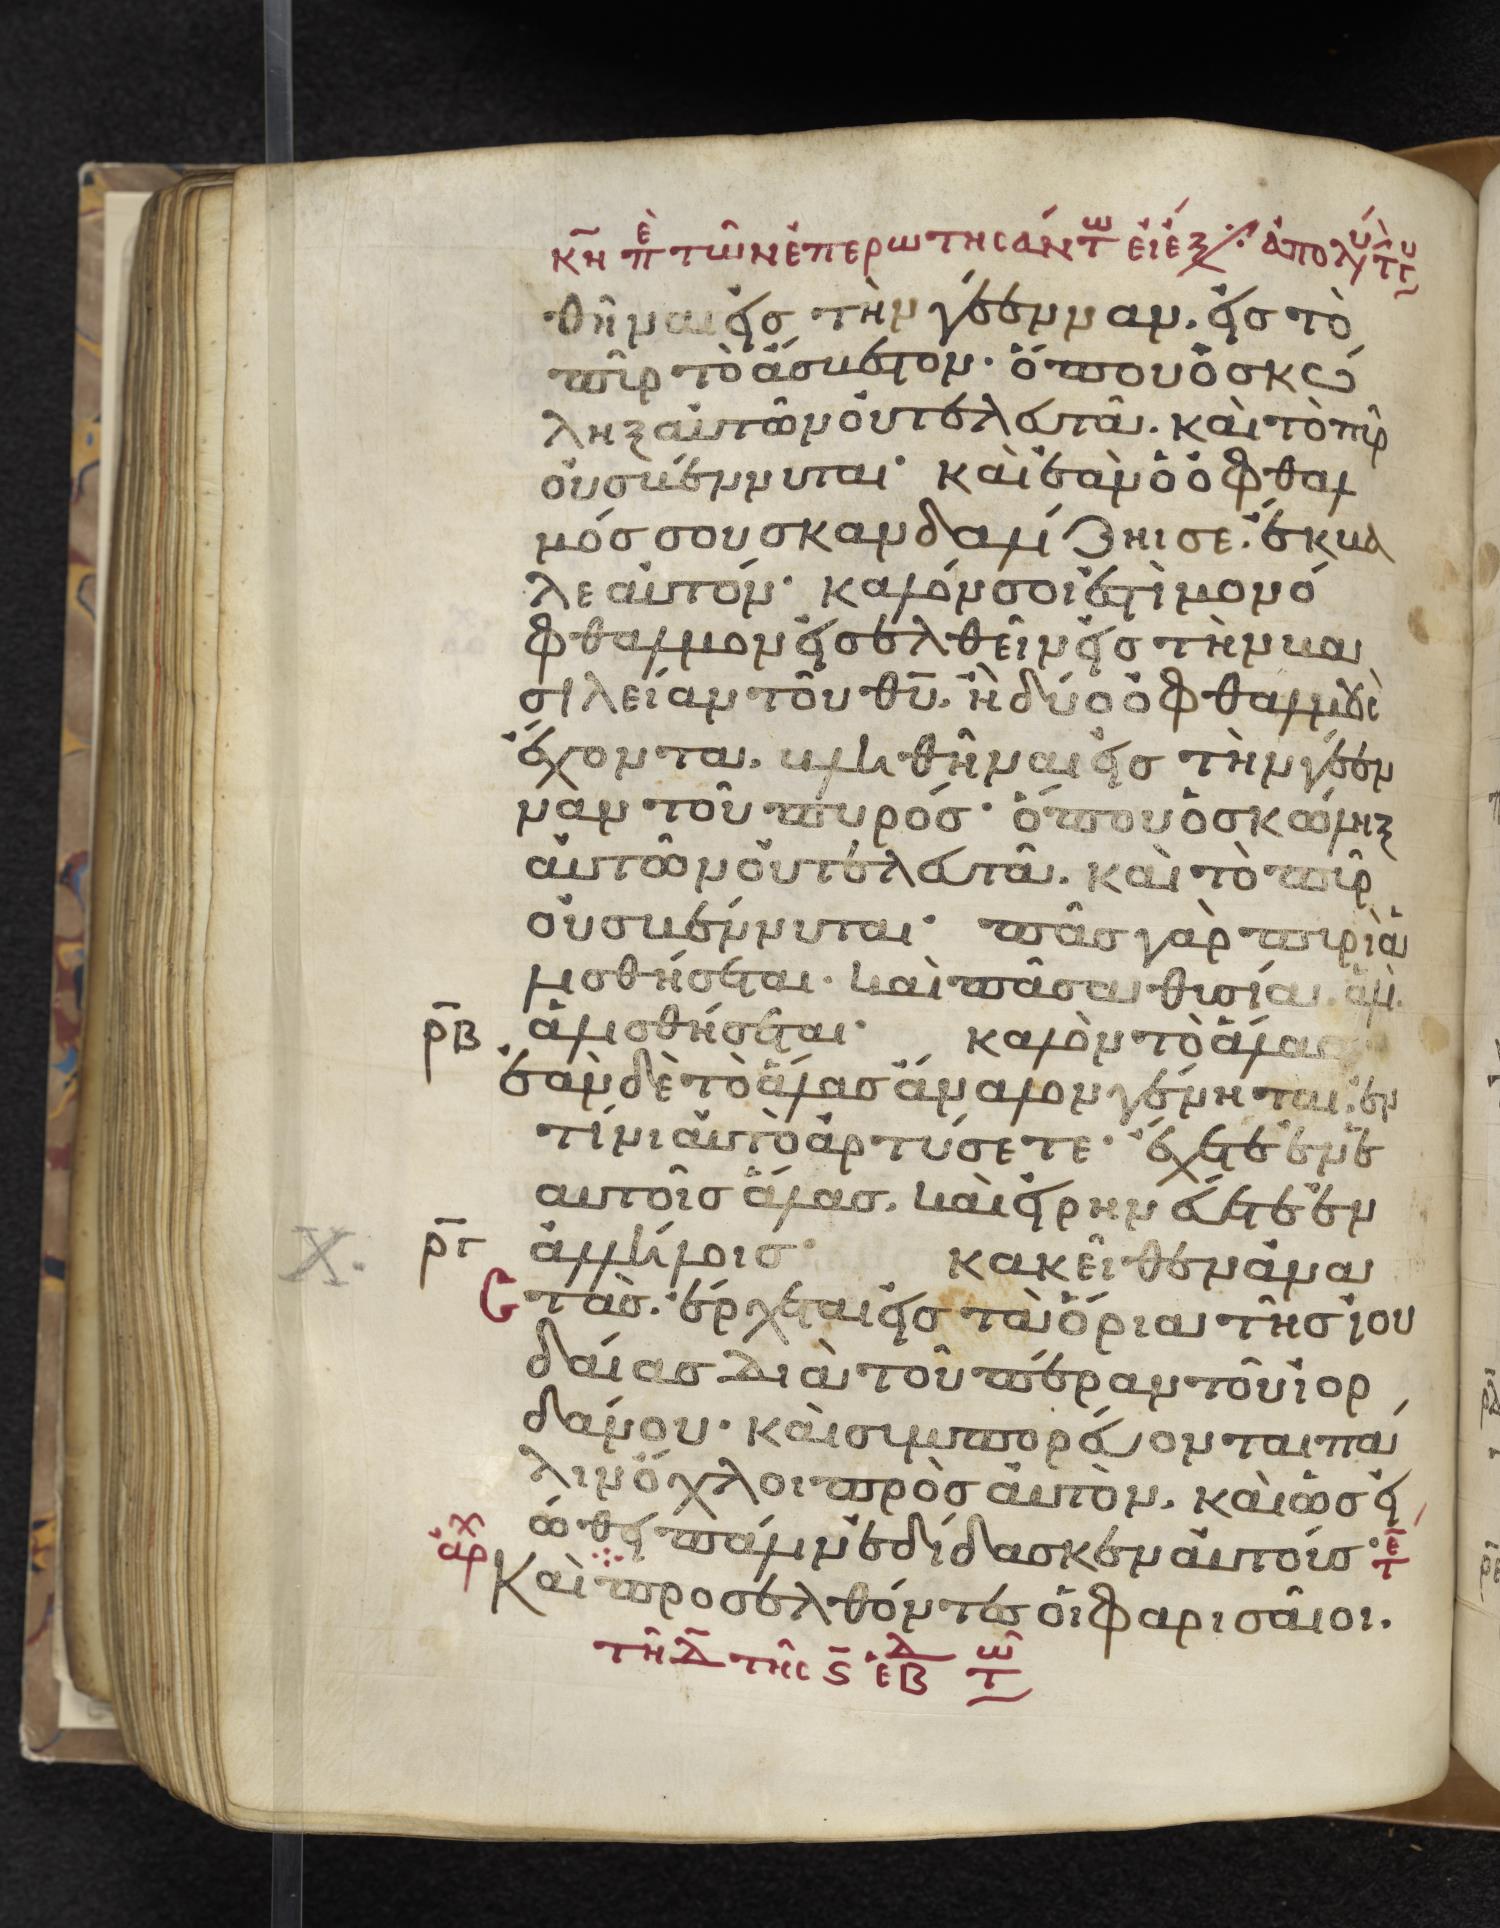 κη π̅ὲ τῶν ἐπερωτησάντ ω εἰ ἔξ ἀπολύ
θῆναι εἰς τὴν γέεννaν. εἰς τὸ
πῦρ τὸ ἄσβεστον· ὅπου ὁ σκώ
ληξ αὐτῶν οὐ τελευτᾶ. καὶ τὸ πῦρ
οὐ σβέννυται· καὶ ἐὰν ὁ ὀφθαλ
μός σου σκανδαλίζηι σε. ἔκβα
λε αὐτόν· καλόν σοι ἐστὶ μονό
φθαλμον εἰσελθεῖν εἰς τὴν βα
σιλείαν τοῦ θυ̅. ἢ δύο ὀφθαλμοὺς
ἔχοντα. βληθῆναι εἰς τὴν γέεν
ναν τοῦ πυρός· ὅπου ὁ σκώληξ
αὐτῶν οὐ τελευτᾶ. καὶ τὸ πῦρ
οὐ σβέννυται· πᾶς γὰρ πυρὶ ἁ
λισθήσεται. καὶ πᾶσα θυσία ἁλὶ
ρ̅β ἁλισθήσεται· καλὸν τὸ ἅλας
ἐὰν δὲ τὸ ἅλας ἄναλον γένηται. ἐν
τίνι αὐτὸ ἀρτύσετε· ἔχετε ἐν ἑ
αυτοῖς ἅλας. καὶ εἰρηνεύετε ἐν
X. ρ̅γ ἀλλήλοις· κακεῖθεν ἀνα
στὰς. ἔρχεται εἰς τὰ ὅρια τῆς ἰου
δαίας διὰ τοῦ πέραν τοῦ ἰορ
δάνου· καὶ συμπορεύονται πά
λιν ὄχλοι πρὸς αὐτὸν. καὶ ὡς εἰ
ώθει πάλιν ἐδίδασκεν αὐτοίς· τε̅
ἀρχ Καὶ προσελθόντες οἱ φαρισαῖοι.
τῆ δ̅ τῆς ς̅ ἑβδ